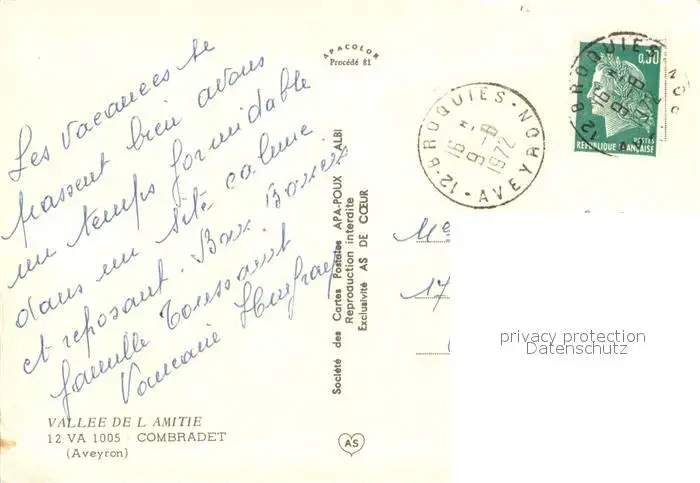 Les vacances se
passent bien avons
un temps formidable
dans un site calme
et reposant. Bons Baisers
famille Toussaint
VALLEE DE L AMITIE
12 VA 1005 COMBRADET
(Aveyron)
APACOLOR
Procédé 81
Société des Cartes Postales APA-POUX ALBI
Reproduction interdite
Exclusivité AS DE CŒUR
AS
12-BROQUIES-NORD
16 H
9-8
1972
AVEYRON
12-BROQUIES NOR
16 H
9-8
0,30
POSTES
REPUBLIQUE FRANÇAISE
17
privacy protection
Datenschutz